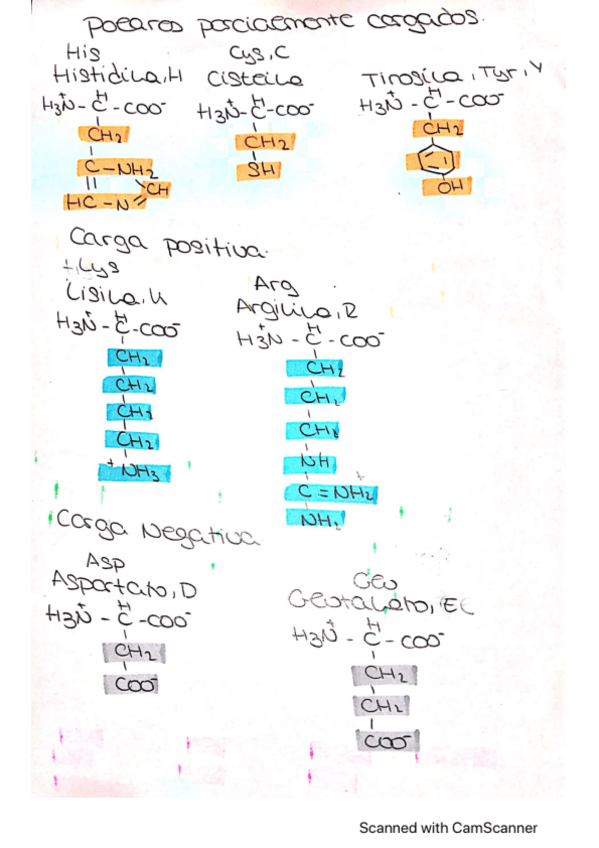 Polares parcialmente cargados.
His
Histidina, H
H3N+ - CH - COO-
CH2
C - NH2
CH
HC - N
Cys, C
Cisteina
H3N+ - CH - COO-
CH2
SH
Tirosina, Tyr, Y
H3N+ - CH - COO-
CH2
OH
Carga positiva.
+ Lys
Lisina, K
H3N+ - CH - COO-
CH2
CH2
CH2
CH2
+NH3
Arg
Arginina, R
H3N+ - CH - COO-
CH2
CH2
CH2
NH
C = NH2+
NH2
Carga Negativa
Asp
Aspartato, D
H3N+ - CH - COO-
CH2
COO-
Glu
Glutamato, E
H3N+ - CH - COO-
CH2
CH2
COO-
Scanned with CamScanner